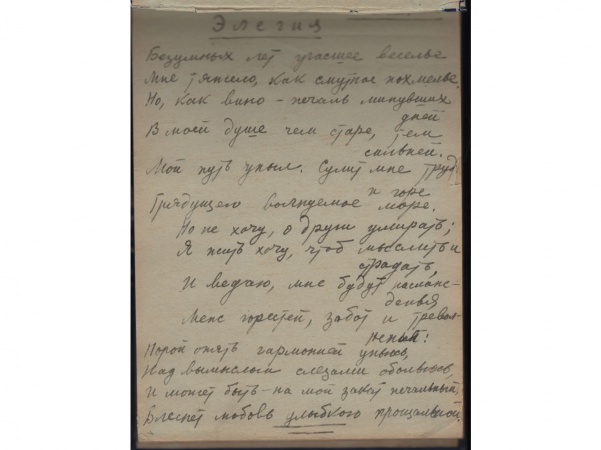 Элегия
Безумных лет угасшее веселье
Мне тяжело, как смутное похмелье.
Но, как вино - печаль минувших
дней
В моей душе чем старе, тем
сильней.
Мой путь уныл. Сулит мне труд
и горе
Грядущего волнуемое море.
Но не хочу, о други умирать;
Я жить хочу, чтоб мыслить и
страдать,
И ведаю, мне будут наслаж-
денья
Меж горестей, забот и тревол-
ненья:
Порой опять гармонией упьюсь,
Над вымыслом слезами обольюсь,
И может быть - на мой закат печальный
Блеснет любовь улыбкою прощальной.